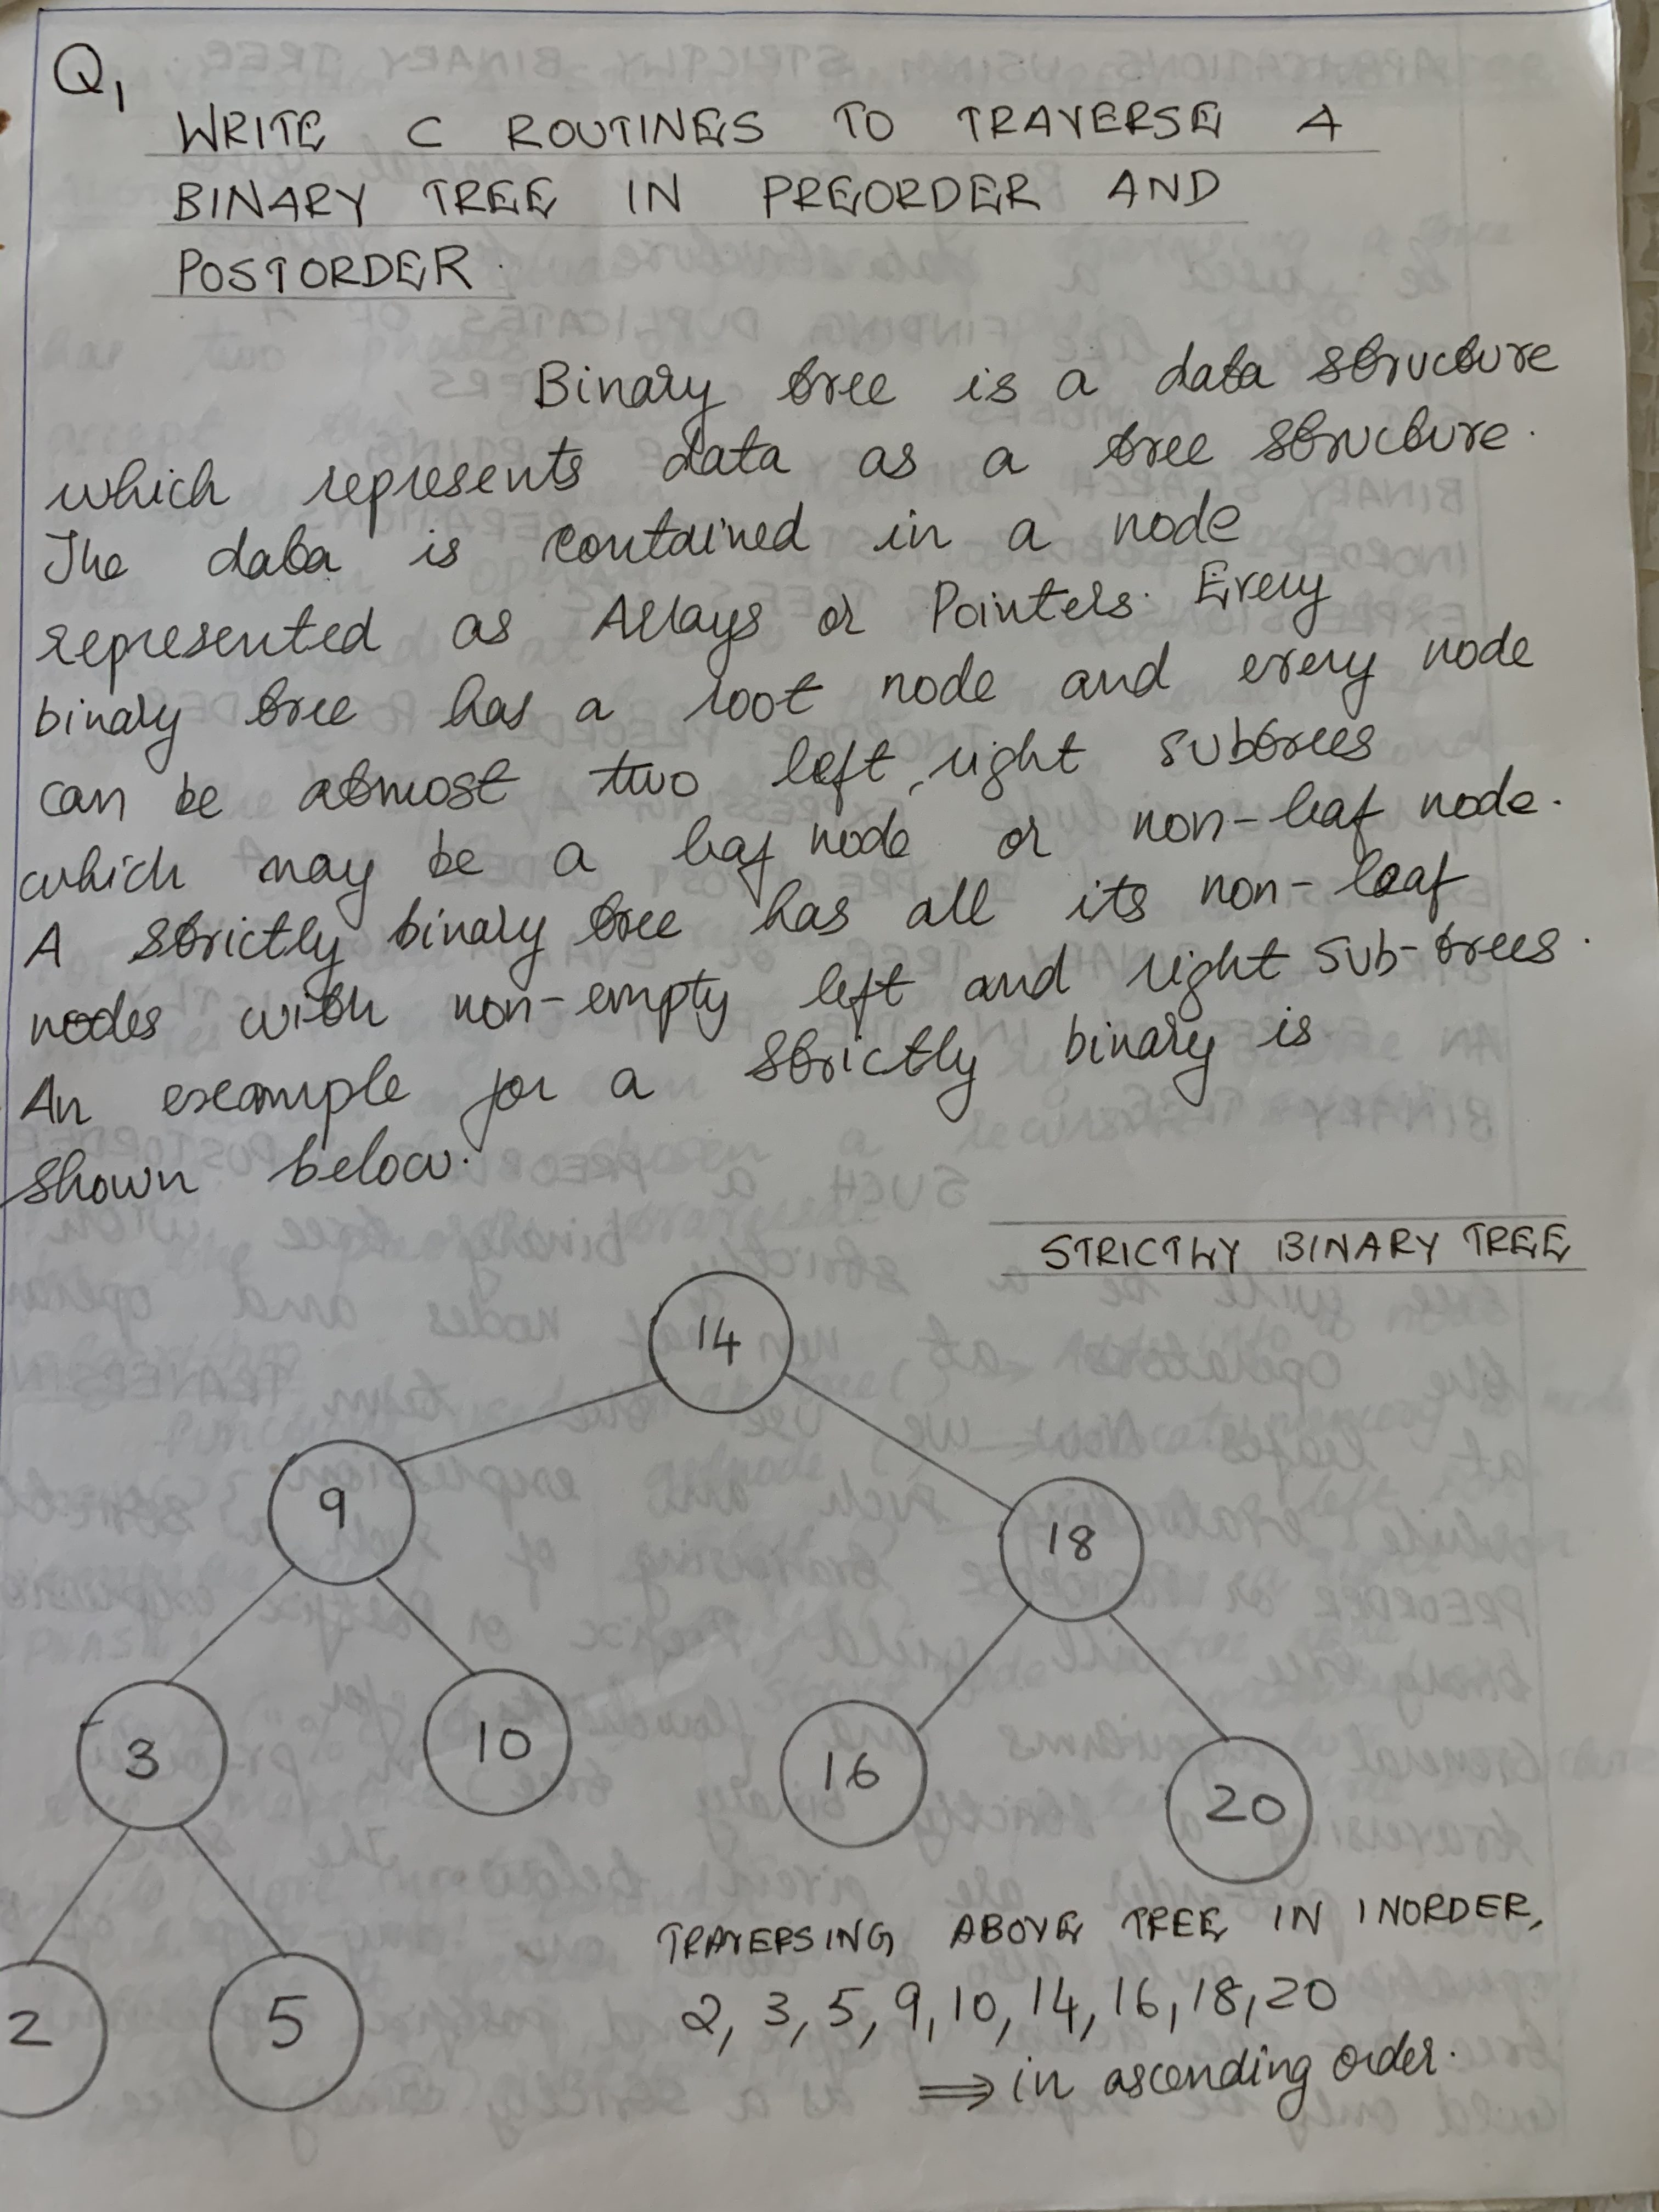 Q1
WRITE C ROUTINES TO TRAVERSE A
BINARY TREE IN PREORDER AND
POSTORDER.
Binary tree is a data structure
which represents data as a tree structure.
The data is contained in a node
represented as Arrays or Pointers. Every
binary tree has a root node and every node
can be atmost two left, right subtrees
which may be a leaf node or non-leaf node.
A strictly binary tree has all its non-leaf
nodes with non-empty left and right sub-trees.
An example for a strictly binary is
shown below.
STRICTLY BINARY TREE
14
9
18
3
10
16
20
2
5
TRAVERSING ABOVE TREE IN INORDER,
2, 3, 5, 9, 10, 14, 16, 18, 20
⟹ in ascending order.